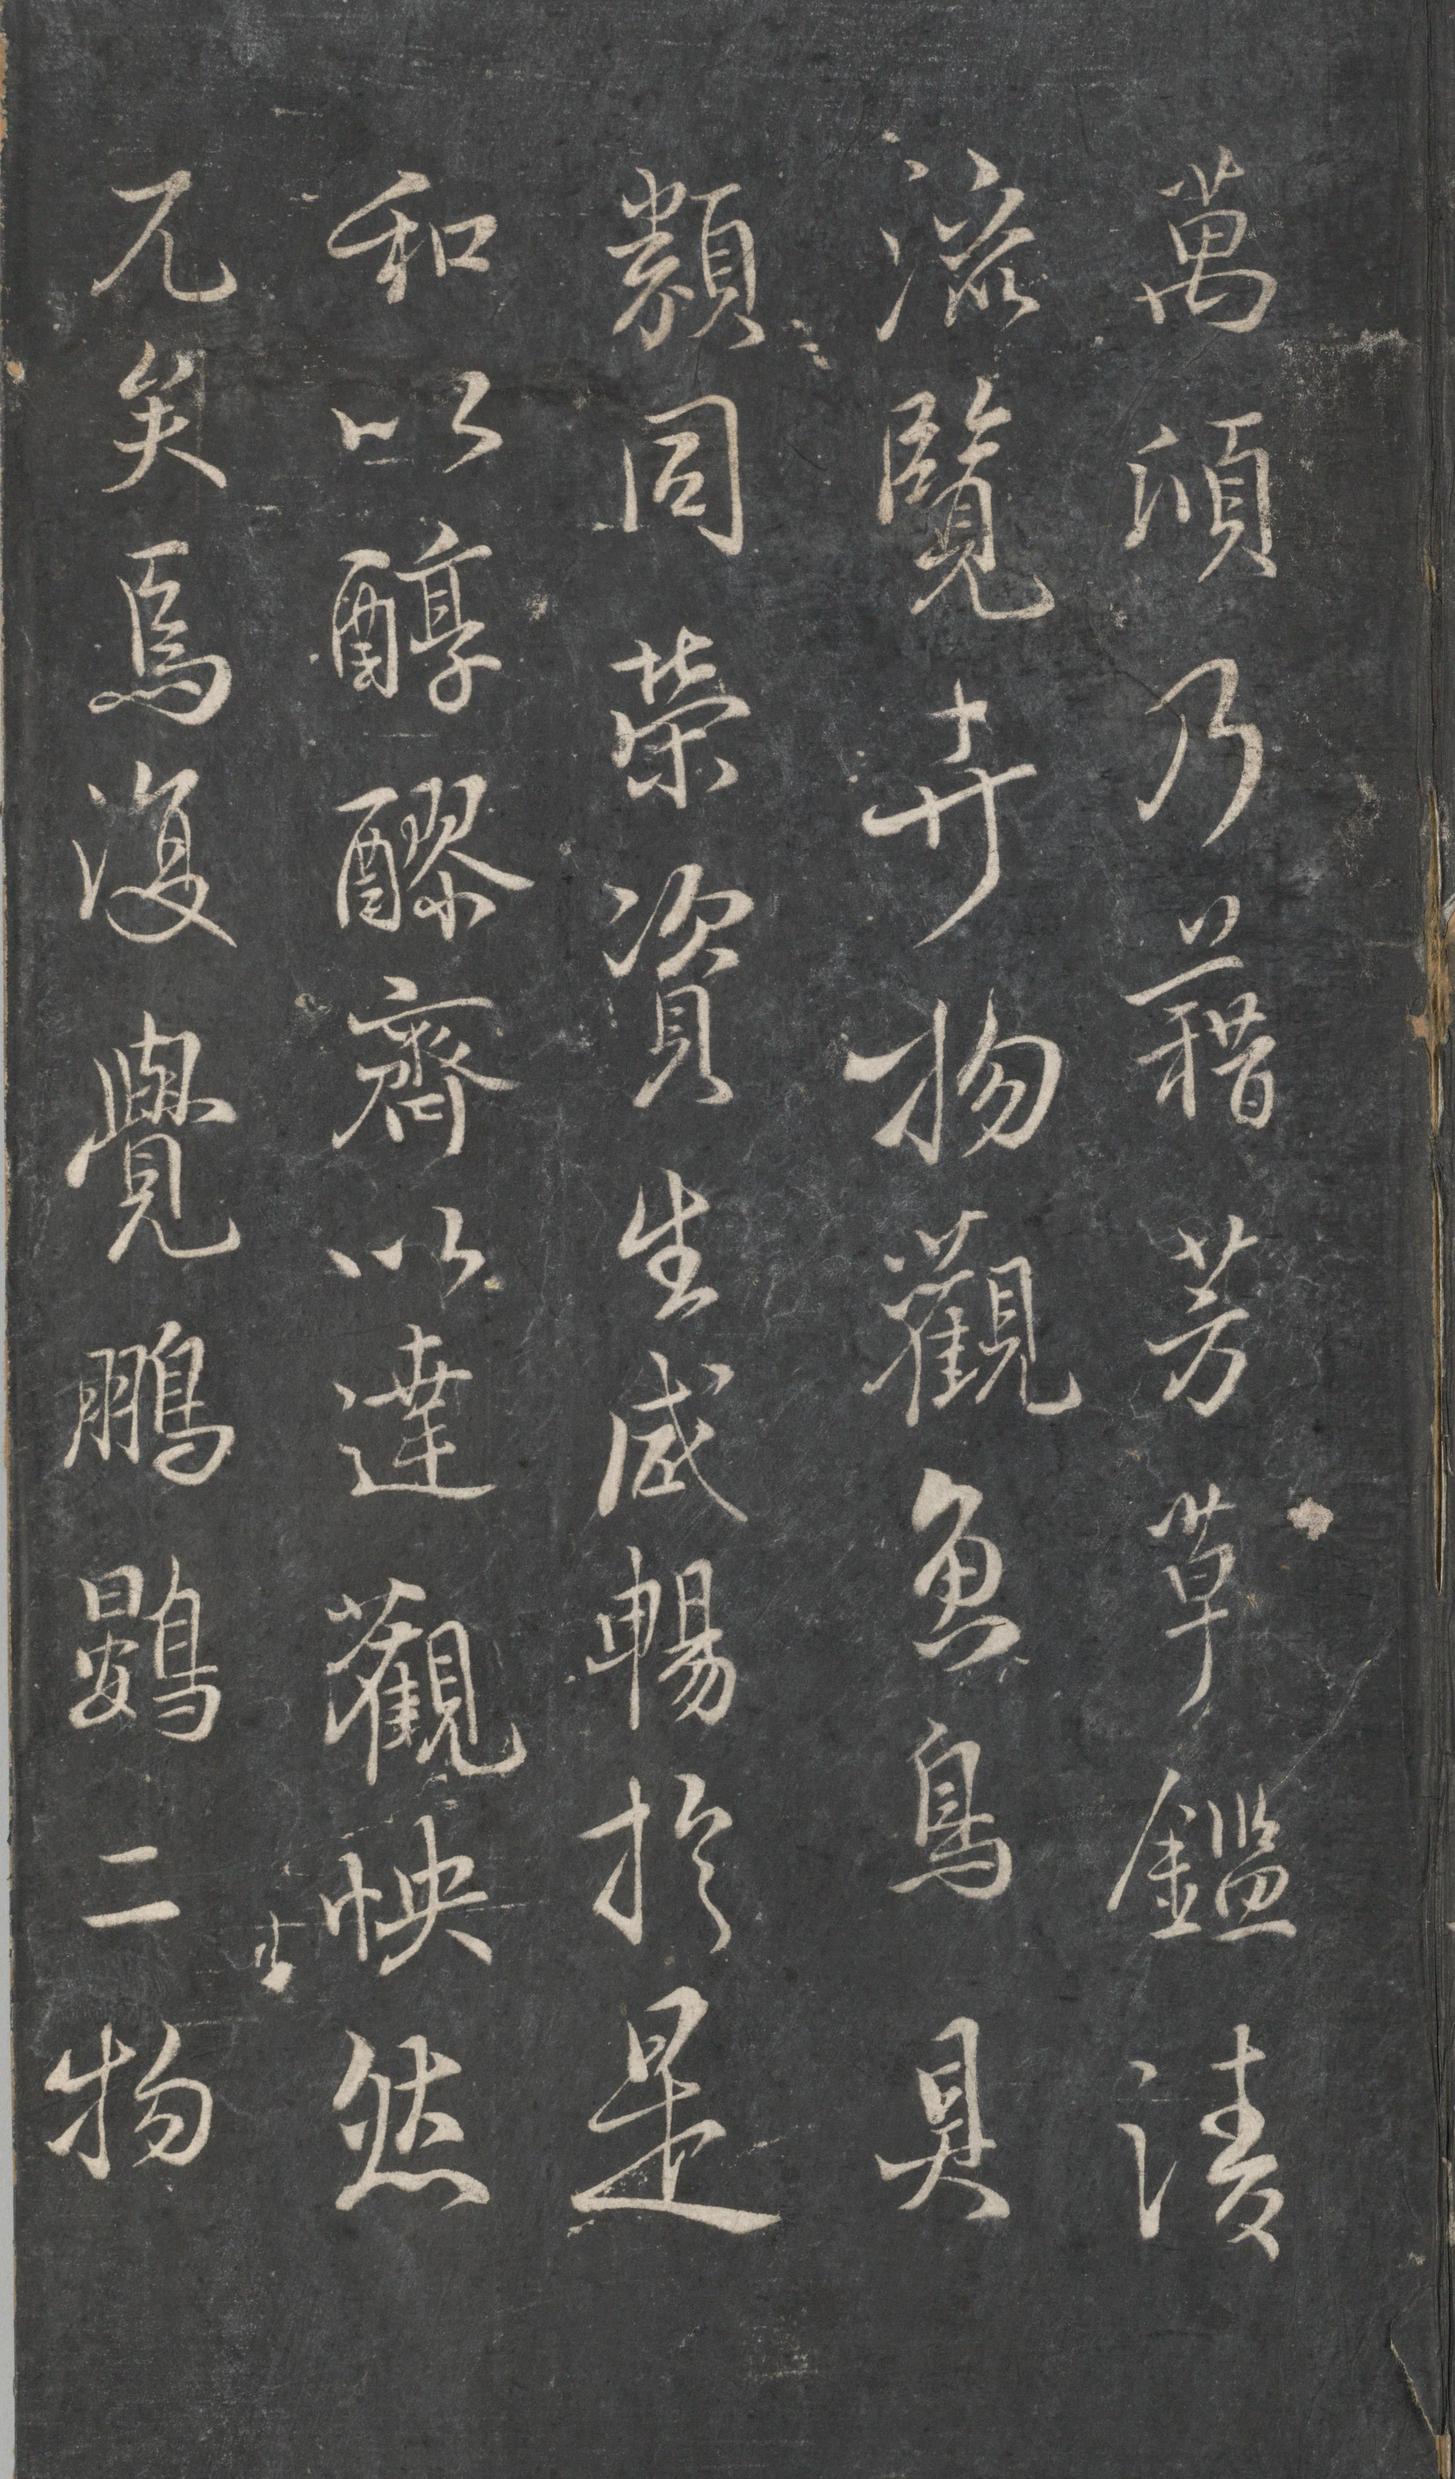 萬頃乃藉芳草鑑清
流覽卉物觀魚鳥具
類同榮資生咸暢於是
和以醇醪齊以達觀怏然
兀矣焉復覺鵬鷃二物